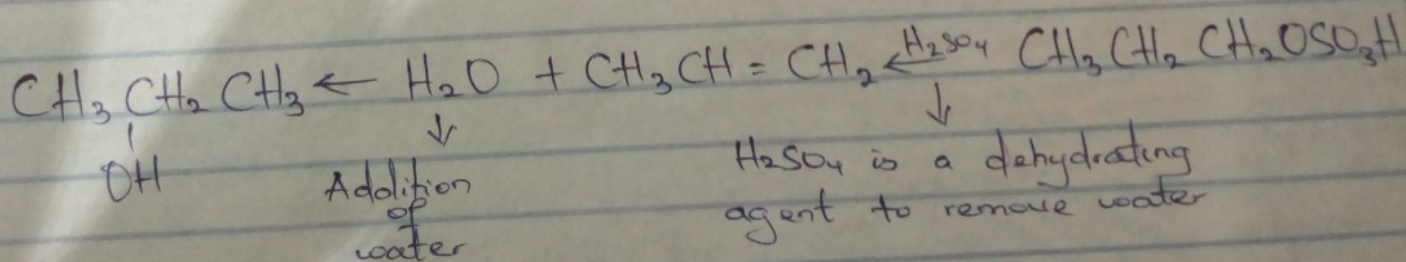 CH₃ CH₂ CH₃ ← H₂O + CH₃CH = CH₂ ←H₂SO₄ CH₃ CH₂ CH₂OSO₃H
OH
↓
Addition
of
water
↓
H₂SO₄ is a dehydrating
agent to remove water